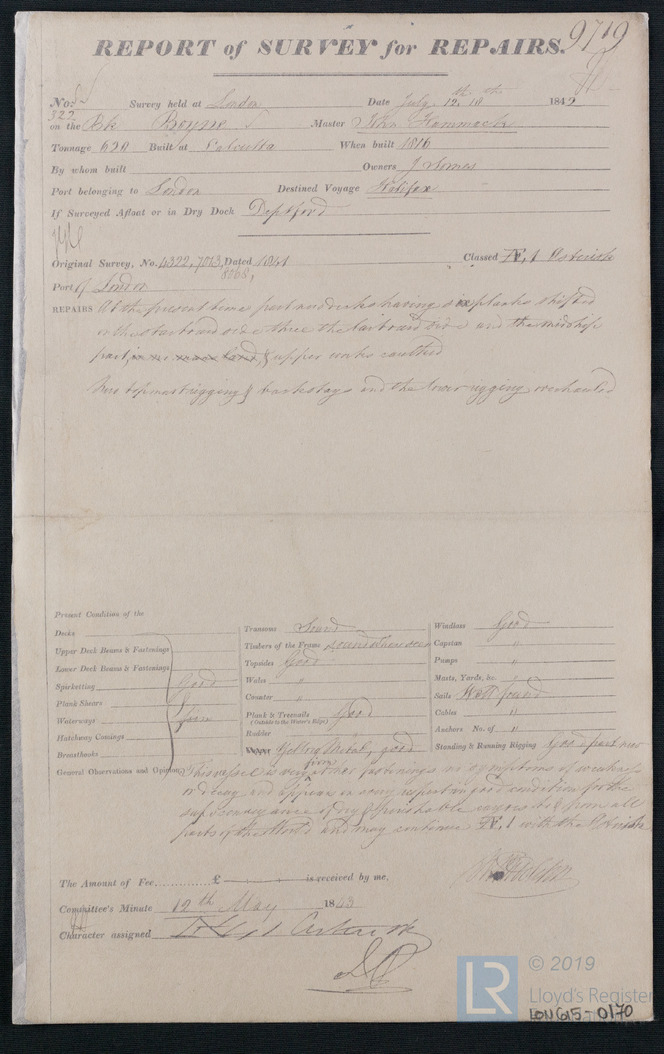 REPORT of SURVEY for REPAIRS. 9719
No. Survey held at London Date July 12th 18th 184
322
on the Bk Boyne Master John Hammack
Tonnage 620 Built at Calcutta When built 1816
By whom built Owners J Somes
Port belonging to London Destined Voyage Halifax
If Surveyed Afloat or in Dry Dock Deptford
Original Survey, No. 4322, 7013, Dated 1841 Classed Æ, 1 Asterisk
8068,
Port of London
REPAIRS At the present time part ndecks having six planks shifted
on the starboard side three the larboard side and the midship
part, & upper works caulked
New topmast rigging & backstays and the lower rigging overhauled
Present Condition of the
Decks
Upper Deck Beams & Fastenings
Lower Deck Beams & Fastenings
Spirketting Good
Plank Shears
Waterways Firm
Hatchway Comings
Breasthooks
Transoms Sound
Timbers of the Frame sound where seen
Topsides Good
Wales "
Counter "
Plank & Treenails Good
(Outside to the Water's Edge)
Rudder
Copper Yellow Metal, good
Windlass Good
Capstan "
Pumps "
Masts, Yards, &c. "
Sails Well found
Cables "
Anchors No. of "
Standing & Running Rigging Good, part new
General Observations and Opinion, This vessel is very firm at her fastenings no symptoms of weakness
or decay and appears in every respect in good condition for the
safe conveyance of dry & perishable cargoes to & from all
parts of the World and may continue Æ, 1 with the Asterisk
The Amount of Fee £ is received by me,
Committee's Minute 12th May 1843
Character assigned Æ 1 Asterisk
LR © 2019
Lloyd's Register
LON 615 - 0170